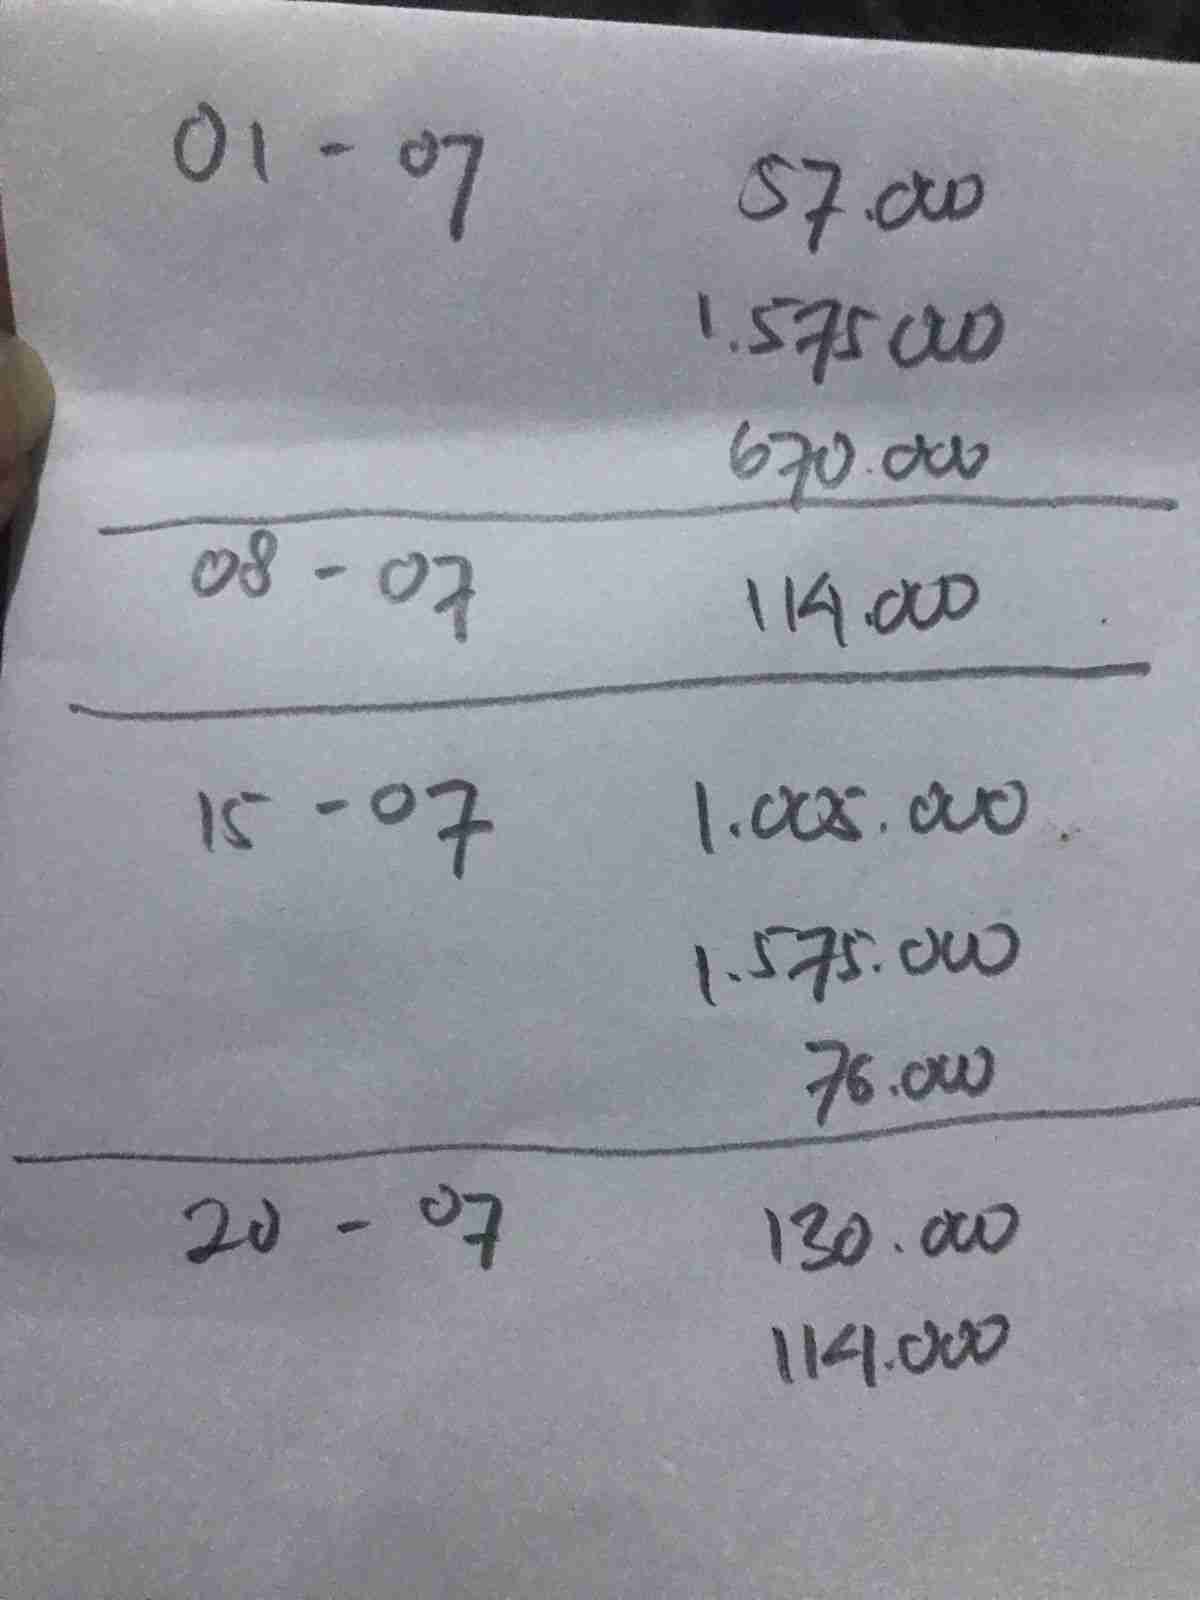 01 - 07 57.000
1.575 000
670.000
08 - 07 114.000
15 - 07 1.005.000
1.575.000
76.000
20 - 07 130.000
114.000